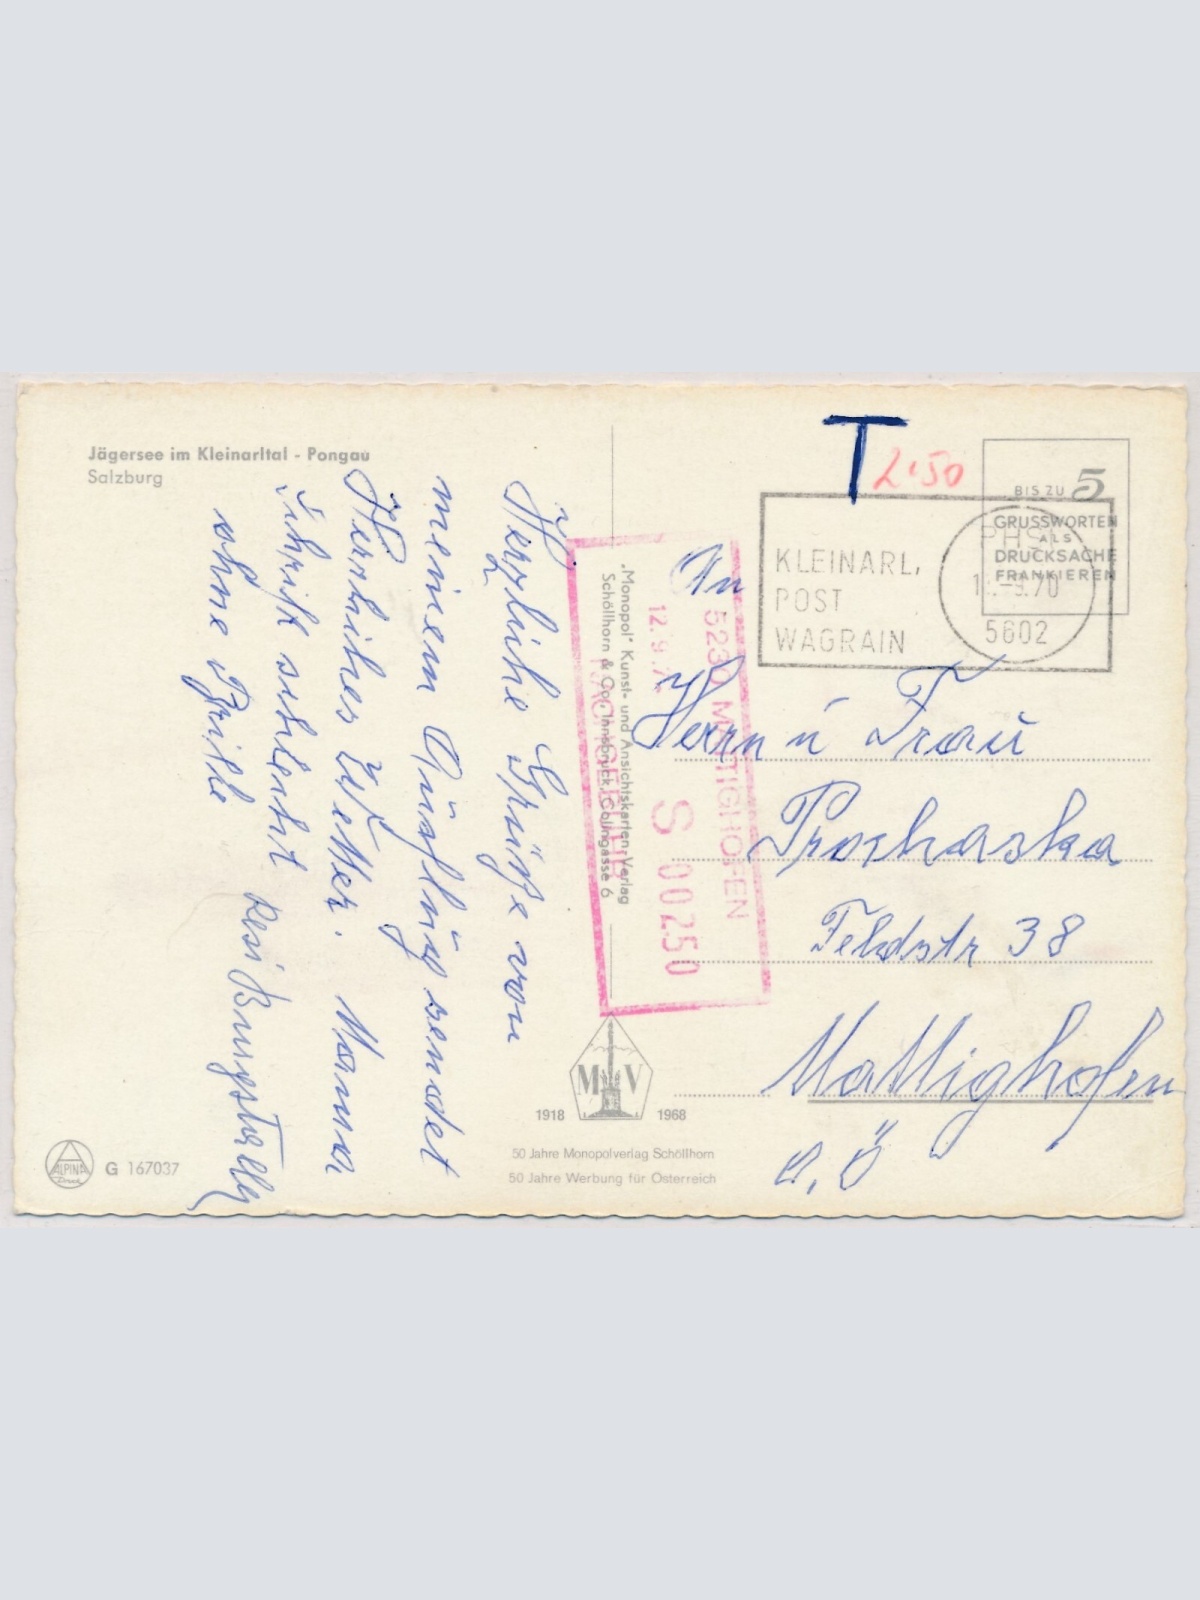 Jägersee im Kleinarltal - Pongau
Salzburg
Herzliche Grüße von
meinem Ausflug sendet
Herrliches Wetter. Mama
schrift schlecht Resi
ohne Brille
T 2·50
BIS ZU 5
GRUSSWORTEN
ALS
DRUCKSACHE
FRANKIEREN
KLEINARL,
POST
WAGRAIN
-9.70
5602
5230 MATTIGHOFEN
12.9.7
S 00250
NACHGEBÜHR
„Monopol" Kunst- und Ansichtskarten-Verlag
Schöllhorn & Co., Innsbruck, Colingasse 6
An
Herrn u Frau
Prochaska
Feldstr 38
Mattighofen
O,Ö
M V
1918 1968
50 Jahre Monopolverlag Schöllhorn
50 Jahre Werbung für Österreich
ALPINA
Druck
G 167037